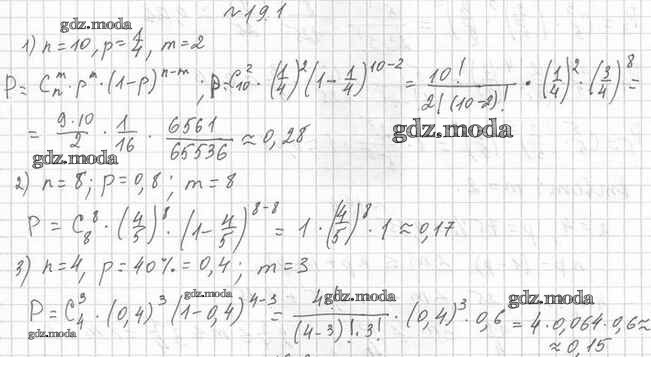 №19.1
gdz.moda
1) n=10, p=1/4, m=2
P = C_n^m · p^m · (1-p)^{n-m}; p=C_10^2 · (1/4)^2 (1-1/4)^{10-2} = 10!/(2!(10-2)!) · (1/4)^2 · (3/4)^8 =
gdz.moda
= 9·10/2 · 1/16 · 6561/65536 ≈ 0,28
gdz.moda
2) n=8; p=0,8; m=8
P = C_8^8 · (4/5)^8 · (1-4/5)^{8-8} = 1 · (4/5)^8 · 1 ≈ 0,17
3) n=4, p=40%=0,4; m=3
gdz.moda gdz.moda gdz.moda
P = C_4^3 · (0,4)^3 (1-0,4)^{4-3} = 4!/((4-3)!·3!) · (0,4)^3 · 0,6 = 4·0,064·0,6≈
gdz.moda
≈ 0,15